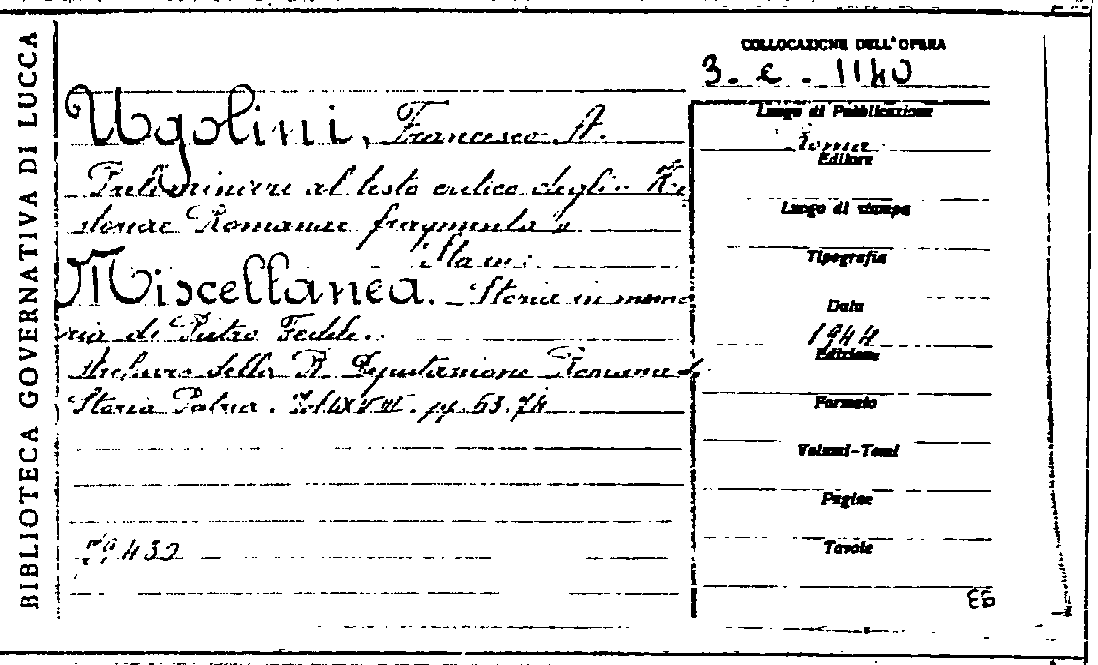 BIBLIOTECA GOVERNATIVA DI LUCCA
COLLOCAZIONE DELL'OPERA
3. e. 1140
Ugolini, Francesco A.
Preliminari al testo critico degli Hi
storiae Romanae fragmenta
Sta in:
Miscellanea. Storia in memo
ria di Pietro Fedele.
Archivio della R. Deputazione Romana di
Storia Patria. Vol. LXVII. pp. 63.74
432
Luogo di Pubblicazione
Roma
Editore
Luogo di stampa
Tipografia
Data
1944
Edizione
Formato
Volumi-Tomi
Pagine
Tavole